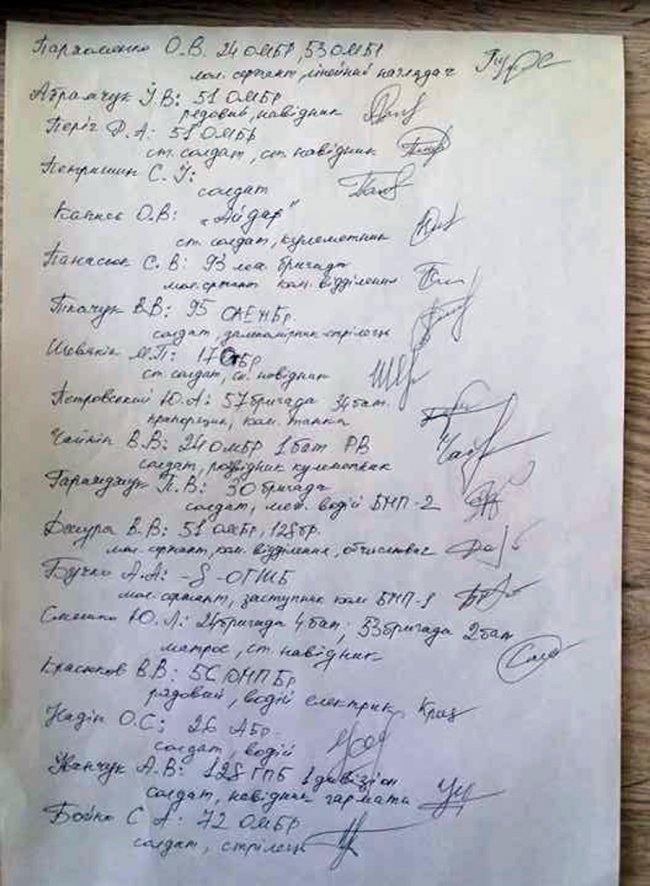 Пархоменко О.В. 24 ОМБР, 53 ОМБР
мол. сержант, лінейний наглядач
Абрамчук Ї В: 51 ОМБР
рядовий, навідник
Періг Ф. А: 51 ОМБР
ст. солдат, ст. навідник
Петришин С. У:
солдат
О.В: „Айдар"
ст. солдат, кулеметник
Панасюк С. В: 93 бригада
мол. сержант ком. відділення
Ткачук В.В: 95
солдат, стрілець
Шевякін М.П: 17 ОТБР
ст. солдат, ст. навідник
Петровський Ю.А: 57 бригада 34 бат.
прапорщик, ком. танка
Чайкін В.В: 24 ОМБР 1 бат РВ
солдат, розвідник кулеметник
П.В: 30 бригада
солдат, мех. водій БМП-2
В.В: 51 ОМБР, 128 бр.
мол. сержант, ком. відділення,
Бучко А.А: -8-ОГШБ
мол. сержант, заступник ком БМП-1
Смешко Ю.Л.: 24 бригада 4 бат; 53 бригада 2 бат
матрос, ст. навідник
Краснов В.В:
рядовий, водій електрик
Надін О.С; 26 АБр.
солдат, водій
Іванчук А.В: 128 ГПБ 1 дивізіон
солдат, навідник гармата
Бойко С А: 72 ОМБР
солдат, стрілець